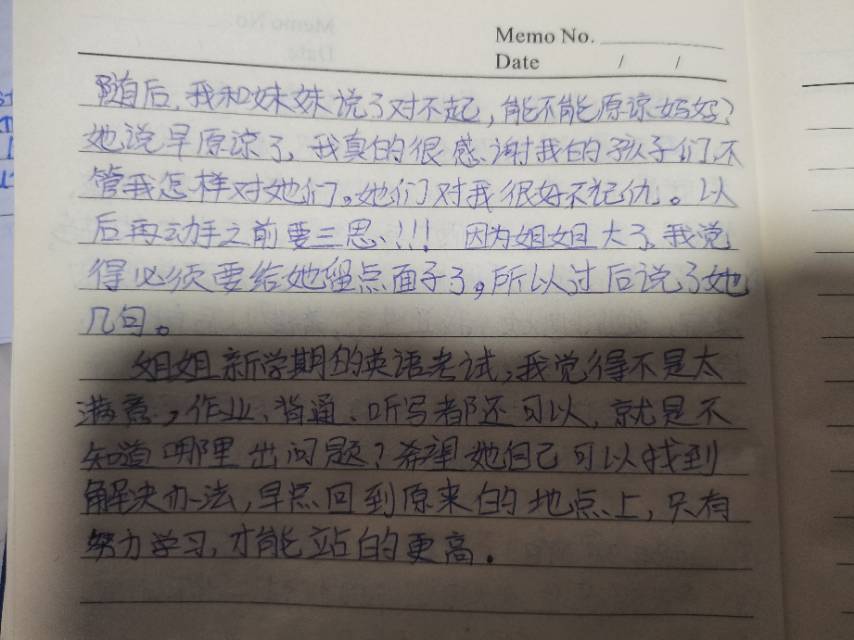 Memo No.
Date / /
随后,我和妹妹说了对不起,能不能原谅妈妈?
她说早原谅了,我真的很感谢我的孩子们,不
管我怎样对她们。她们对我很好不记仇。以
后再动手之前要三思!!! 因为姐姐大了,我觉
得必须要给她留点面子了,所以过后说了她
几句。
姐姐新学期的英语考试,我觉得不是太
满意,作业、背诵、听写都还可以,就是不
知道哪里出问题?希望她自己可以找到
解决办法,早点回到原来的地点上,只有
努力学习,才能站的更高.